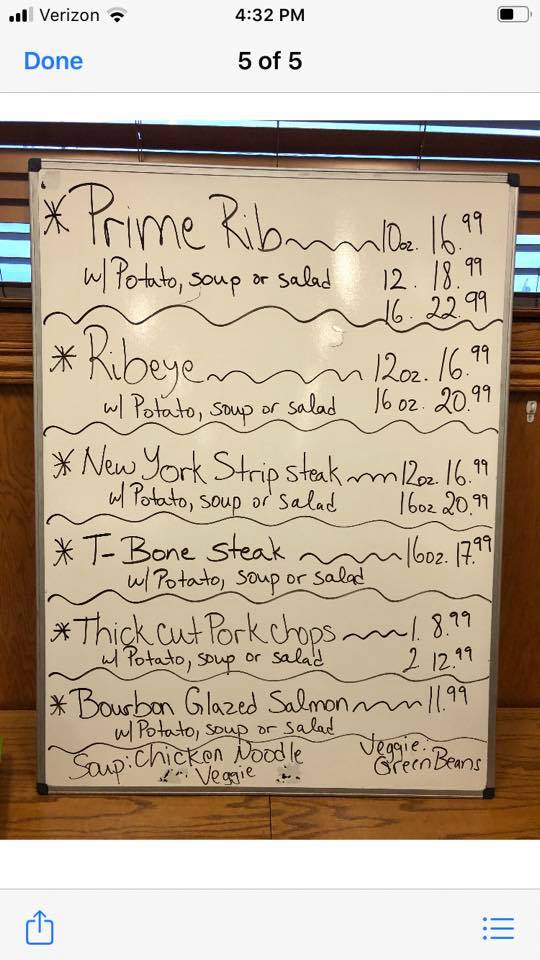 Verizon 4:32 PM
Done 5 of 5
* Prime Rib 10oz. 16.99
w/ Potato, soup or salad 12. 18.99
16. 22.99
* Ribeye 12oz. 16.99
w/ Potato, soup or salad 16 oz. 20.99
* New York Strip steak 12oz. 16.99
w/ Potato, soup or salad 16oz 20.99
* T-Bone steak 16oz. 17.99
w/ Potato, soup or salad
* Thick cut Pork chops 1. 8.99
w/ Potato, soup or salad 2 12.99
* Bourbon Glazed Salmon 11.99
w/ Potato, soup or salad
Soup: Chicken Noodle Veggie:
Veggie Green Beans